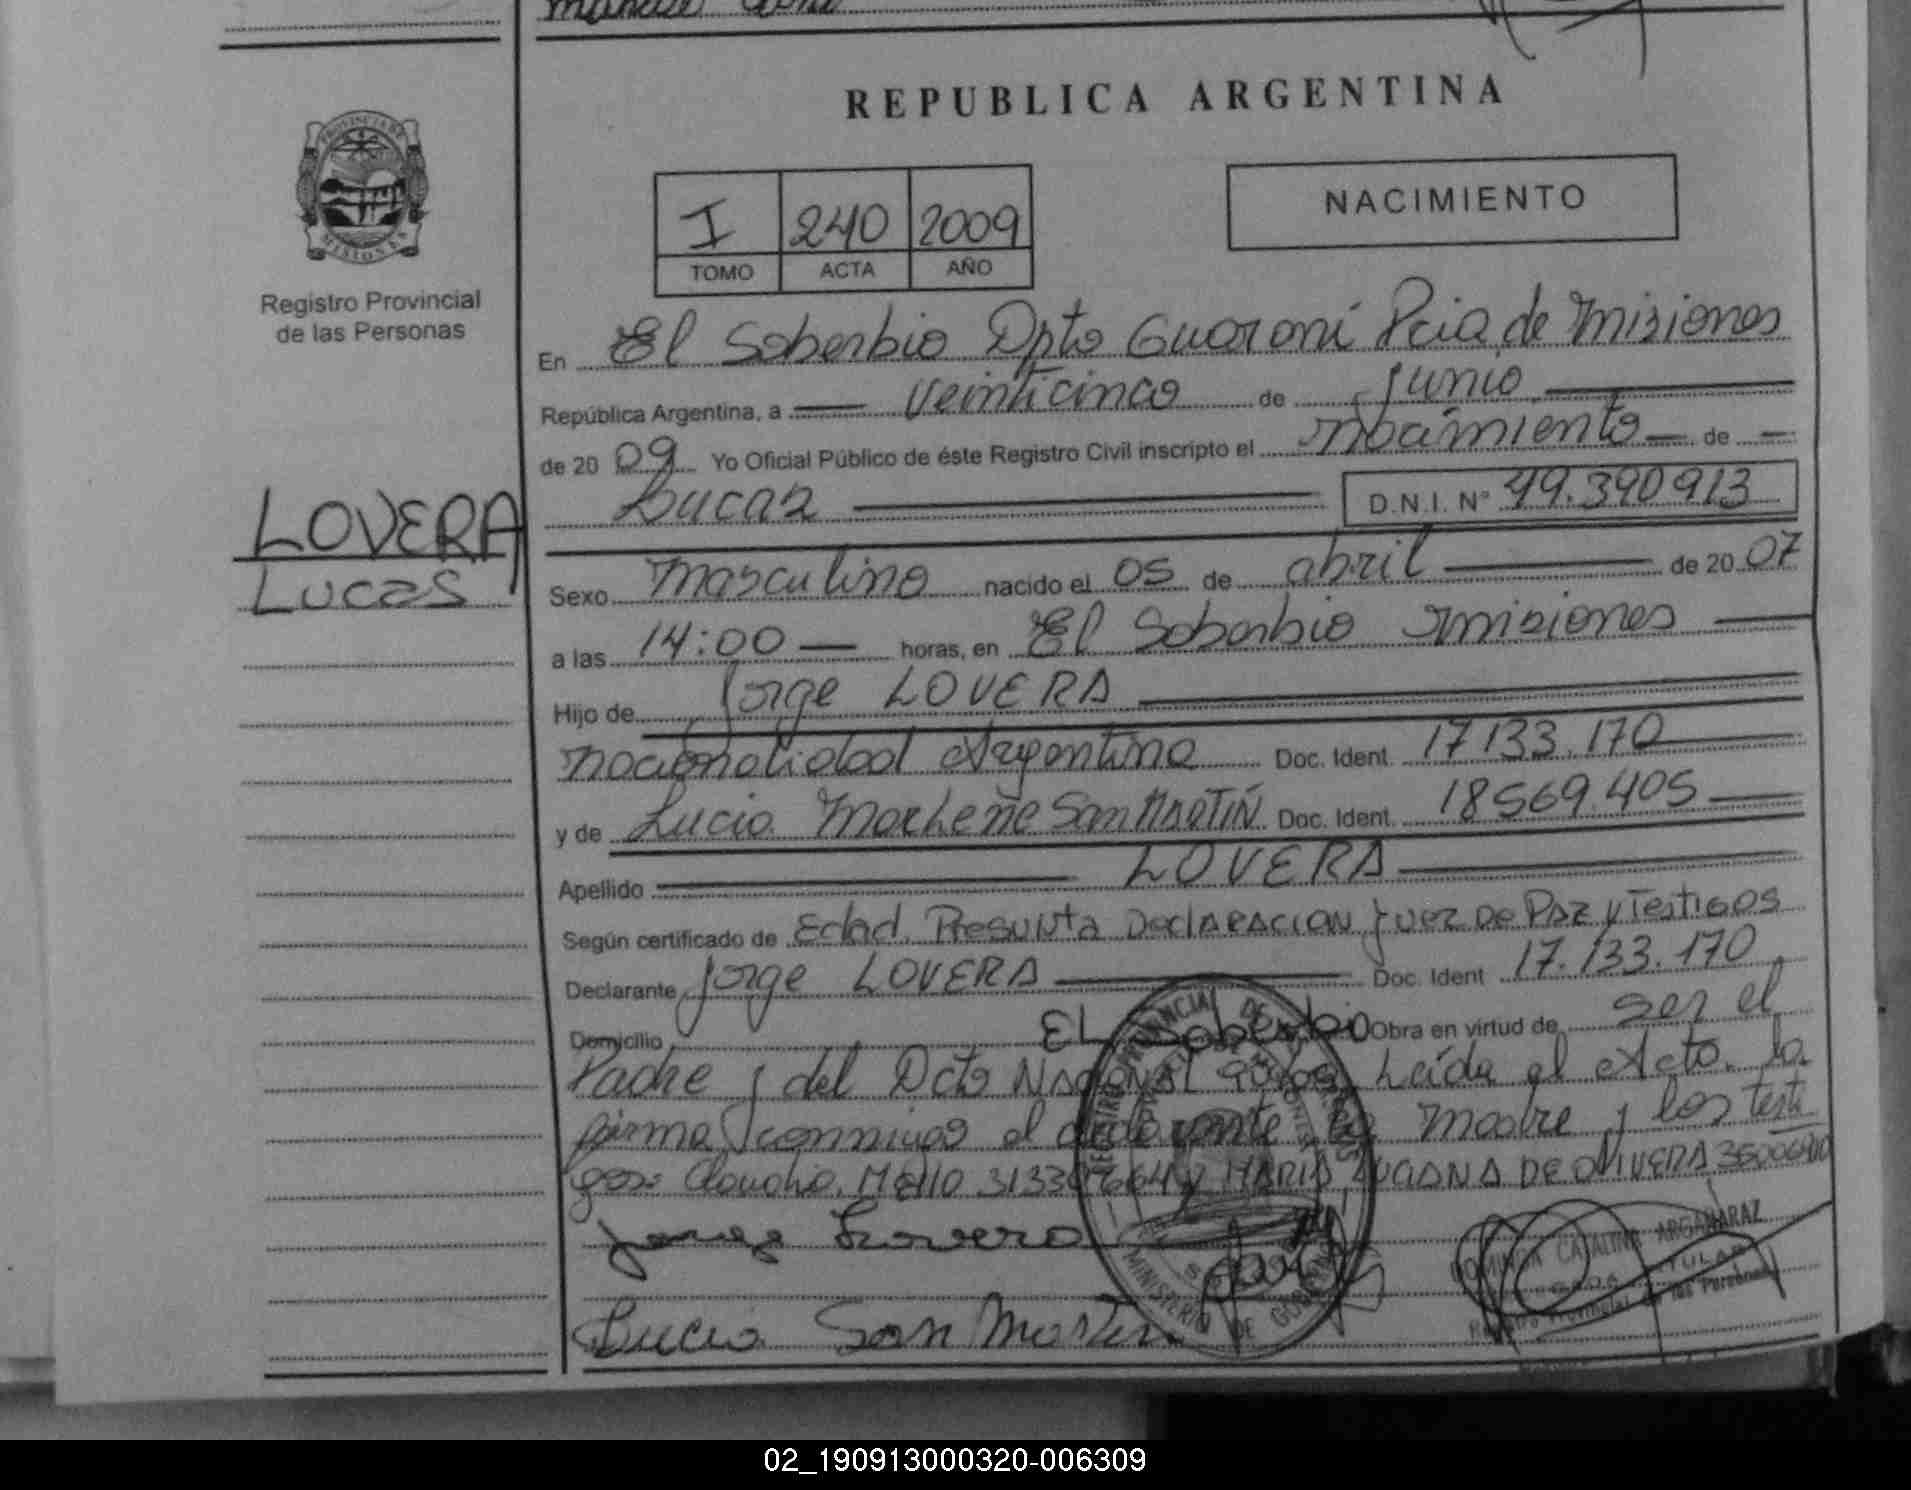 REPUBLICA ARGENTINA
PROVINCIA DE
MISIONES
Registro Provincial
de las Personas
I 240 2009
TOMO ACTA AÑO
NACIMIENTO
En El Soberbio Dpto Guaraní Pcia de Misiones
República Argentina, a veinticinco de junio
de 2009 Yo Oficial Público de éste Registro Civil inscripto el nacimiento de
Lucas D.N.I. N° 49.390913
LOVERA
Lucas
Sexo masculino nacido el 05 de abril de 2007
a las 14:00 horas, en El Soberbio Misiones
Hijo de Jorge LOVERA
nacionalidad Argentina Doc. Ident. 17133.170
y de Lucia Marlene San MARTIN Doc. Ident. 18569.405
Apellido LOVERA
Según certificado de Edad Presunta DeclARACION Juez De PAZ y Testigos
Declarante Jorge LOVERA Doc. Ident 17.133.170
Domicilio EL Soberbio Obra en virtud de ser el
Padre y del Dcto NACIONAL Leída el Acta la
firma conmigo el declarante la madre y los testi
gos: Claudio MARIA LUCIANA DE OLIVERA
Jorge Lovera
CATALINA ARGAÑARAZ
TITULAR
Lucia San Martin
MINISTERIO DE GOBIERNO
02_190913000320-006309